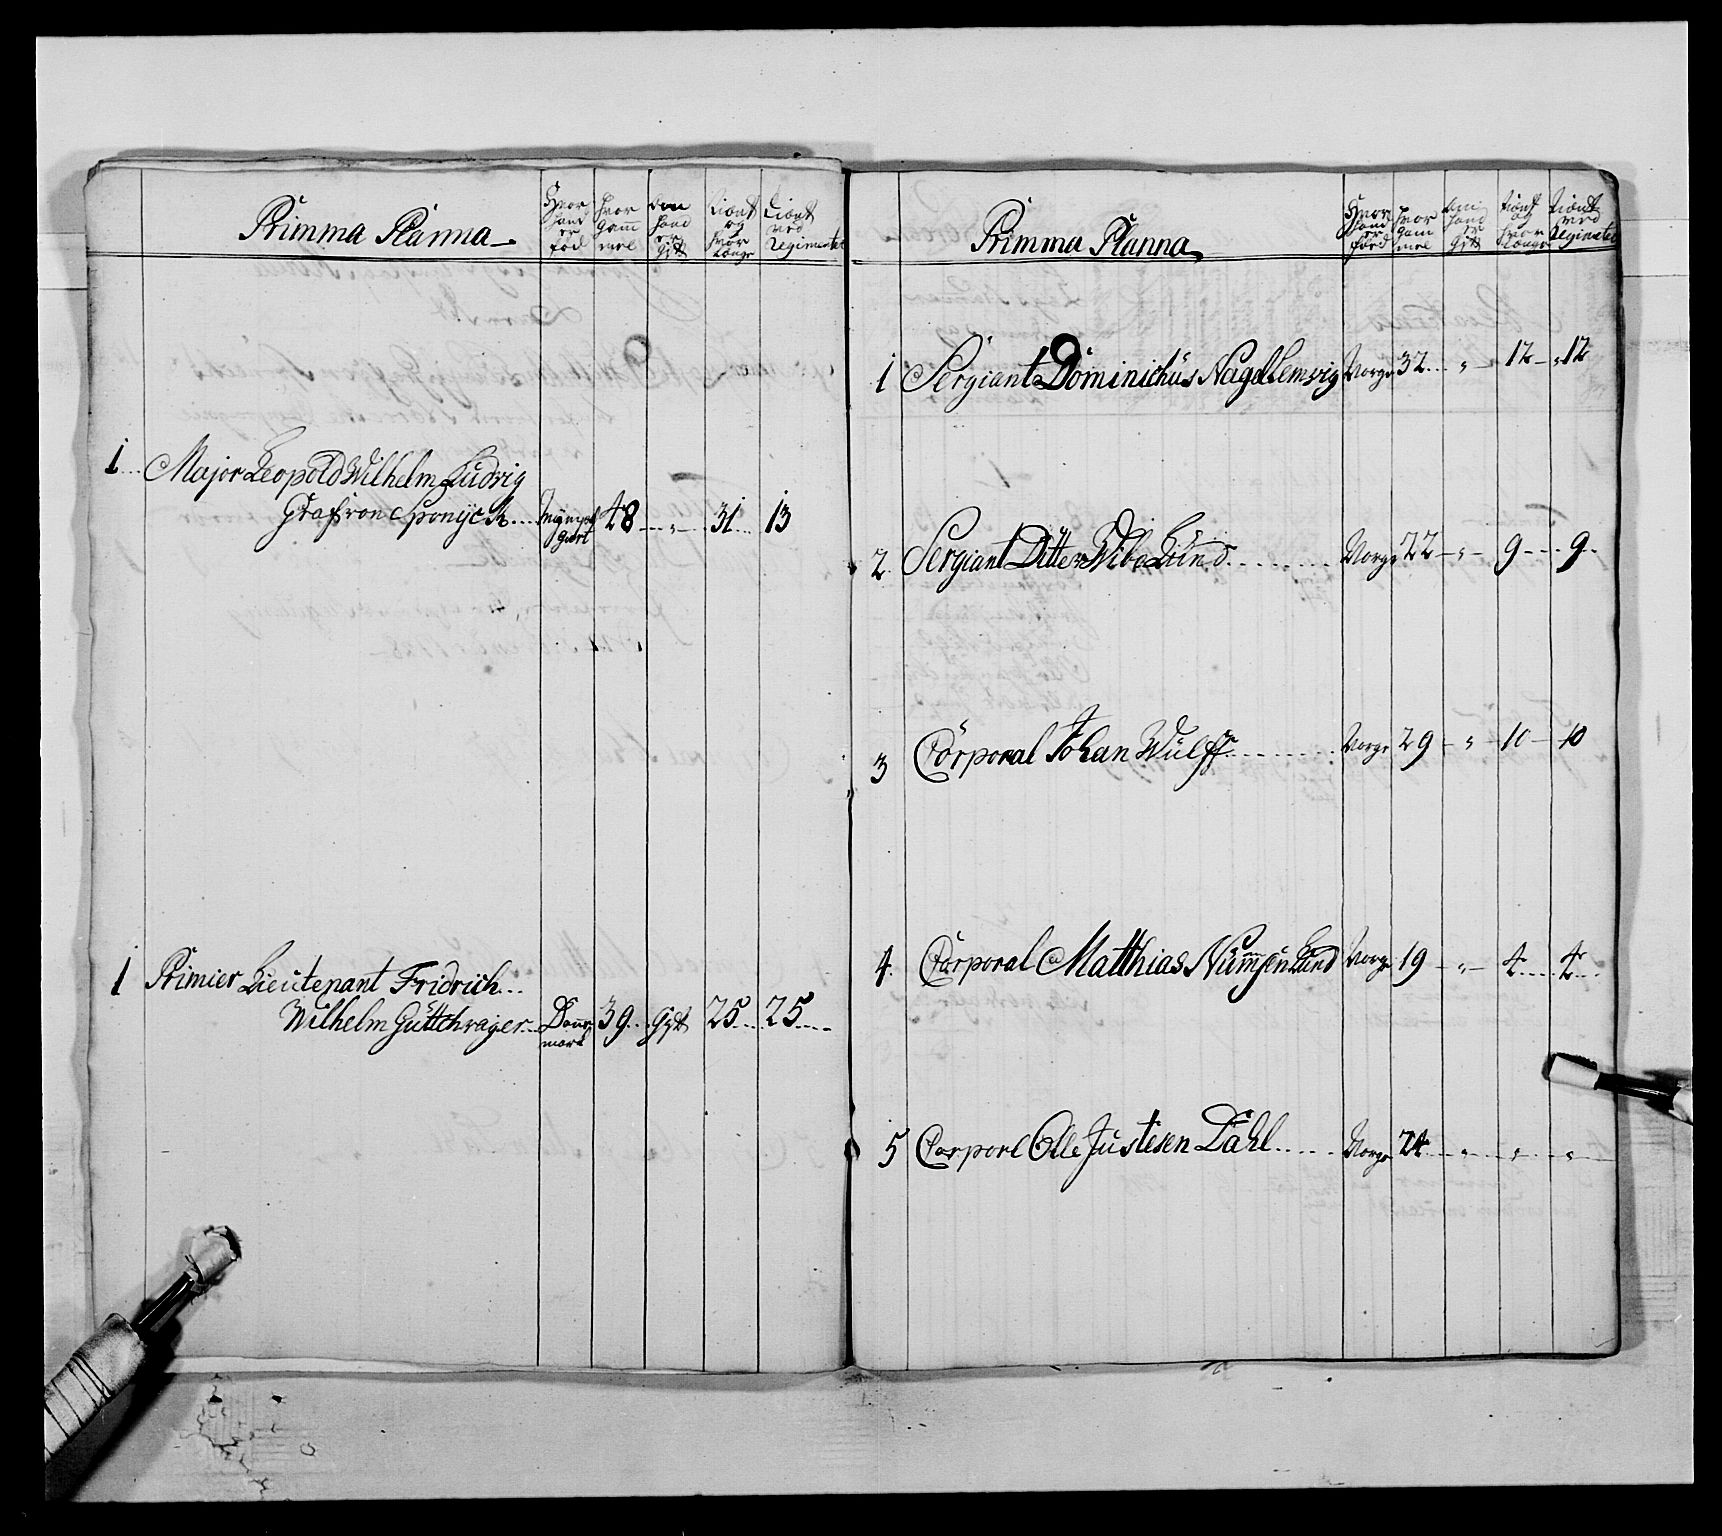 Primma Planna
Hvor hand er föd
hvor gamm mel
om hand er gift
tiönt og hvor Længe
tiönt ved Regimentet
1 Major Leopold Wilhelm Ludvig
Graf von Sponÿck 48 " 31 13
1 Primier Lieutenant Fridrich
Wilhelm Güttchvager Danne mark 39 gift 25 25
Primma Planna
Hvor hand er föed
hvor gam mel
om hand er gift
tiönt og hvor Længe
tiönt ved Regimentet
1 Sergiant Dominichüs Nagel Lemvig Norge 32 " 12 12
2 Sergiant Ditlev Wibe Lünd Norge 22 " 9 9
3 Corporal Johan Wülff Norge 29 " 10 10
4 Corporal Matthias Nümmsen Lund Norge 19 " 4 4
5 Corporl Olle Justesen Dahl Norge 24 " " "